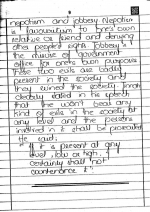 nepotism and jobbery. Nepotism
is favouritism to one's own
relative or friend and denying
other people's rights. Jobbery is
the misuse of government
office for one's own purposes
these two evils are badly
present in the society and
they ruined the society. Jinnah
clearly stated in his speech
that he won't bear any
kind of evils in the country at
any level and the persons
involved in it shall be prosecuted
He said;
" If it is present at any
level, low or high, I
certainly shall not
countenance it".